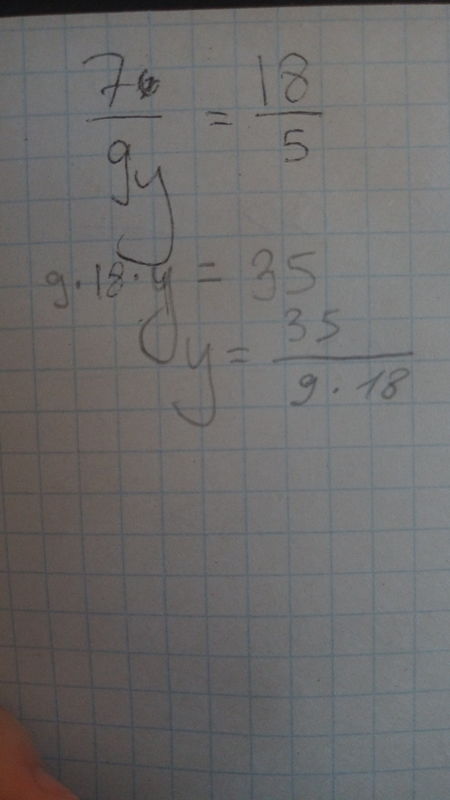 7/9y = 18/5
9·18·y = 35
y = 35/9·18